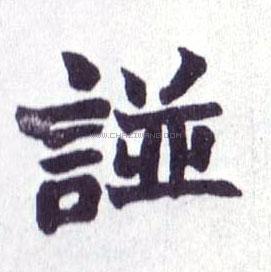 諩
WWW.CHAZIWANG.COM